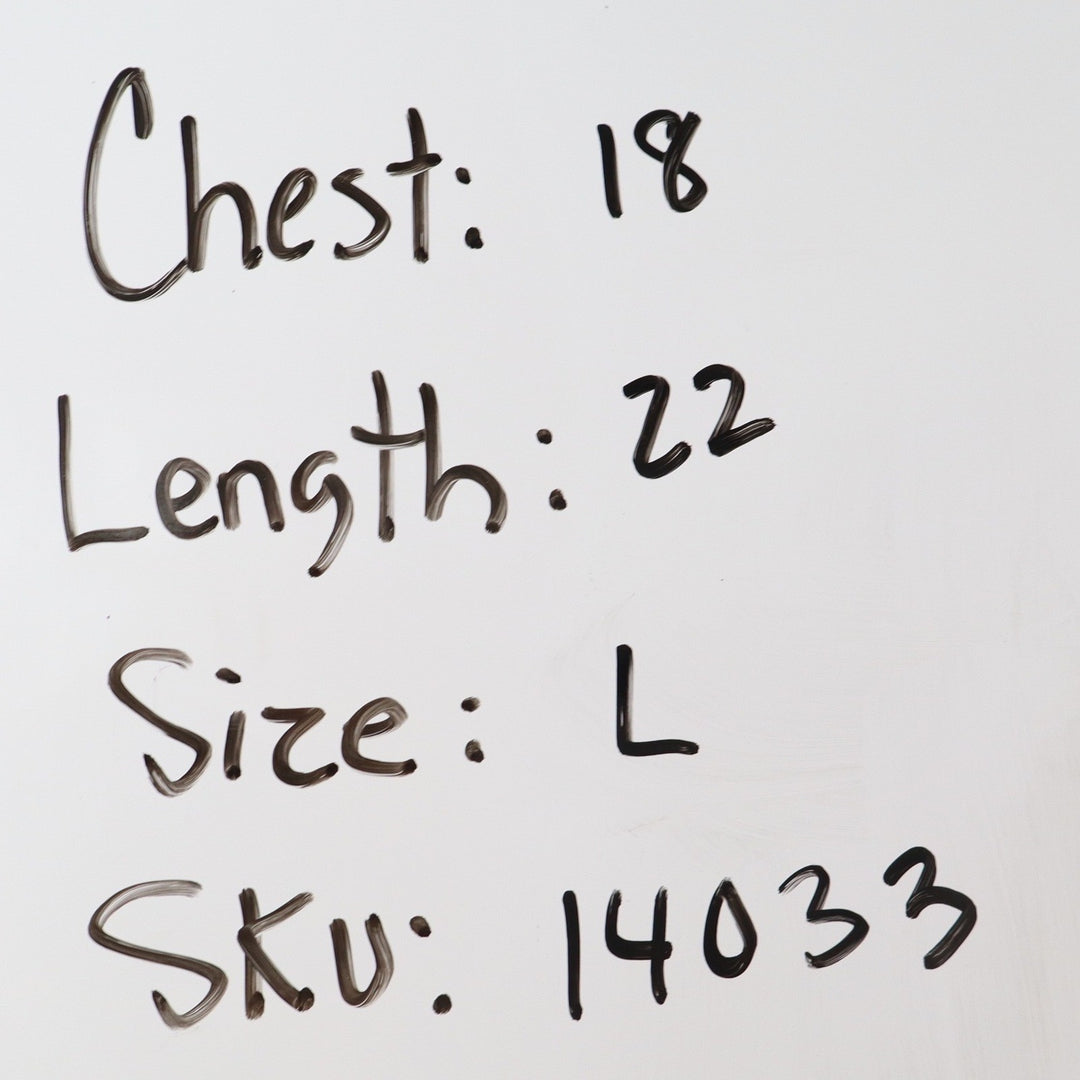 Chest: 18
Length: 22
Size: L
SKU: 14033